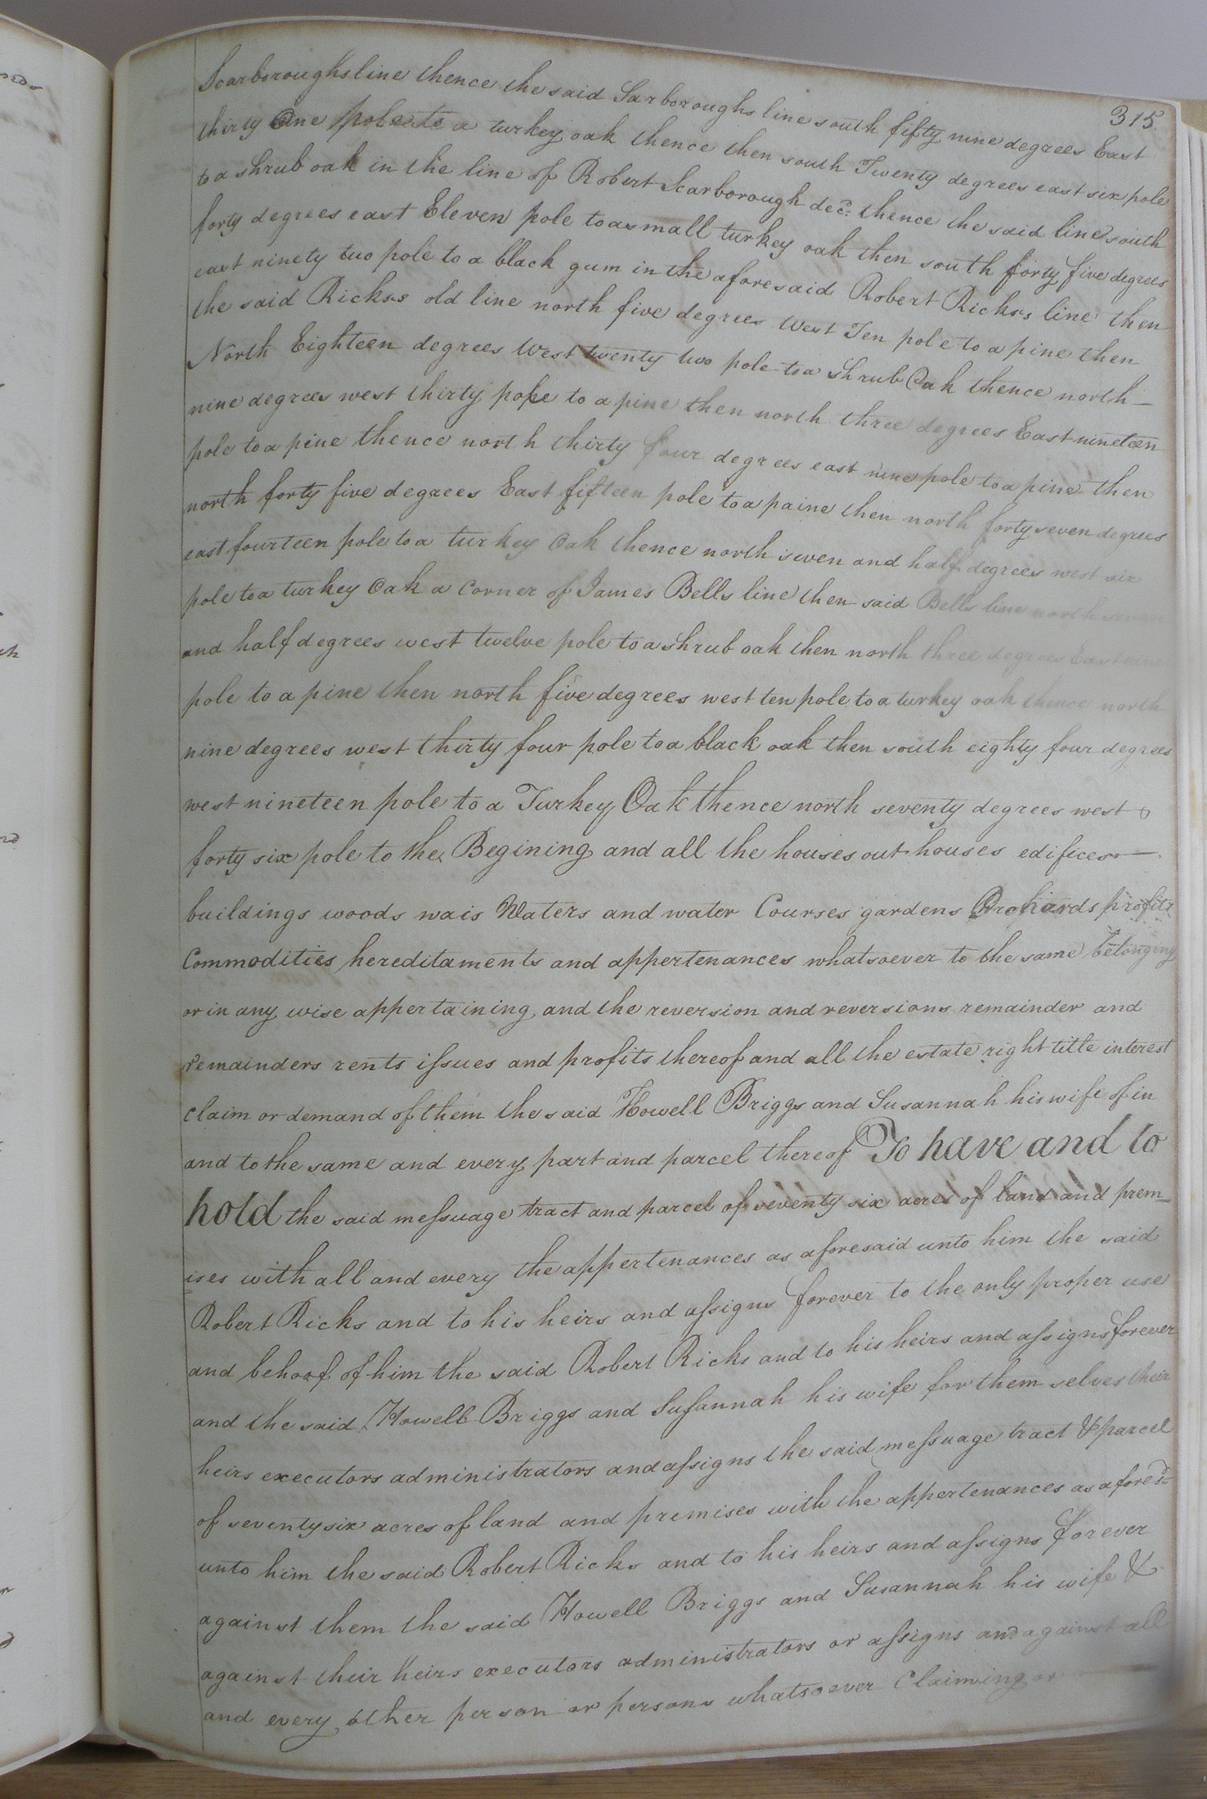 315
Scarboroughs line thence the said Sarboroughs line south fifty nine degrees East
thirty One pole to a turkey oak thence then south Twenty degrees east six pole
to a shrub oak in the line of Robert Scarborough decd. thence the said line south
forty degrees east Eleven pole to a small turkey oak then south forty five degrees
east ninety two pole to a black gum in the aforesaid Robert Ricks's line then
the said Ricks's old line north five degrees West Ten pole to a pine then
North Eighteen degrees West twenty two pole to a shrub Oak thence north
nine degrees west thirty pole to a pine then north three degrees East nineteen
pole to a pine thence north thirty four degrees east nine pole to a pine then
north forty five degrees East fifteen pole to a paine then north forty seven degrees
east fourteen pole to a turkey Oak thence north seven and half degrees west six
pole to a turkey Oak a Corner of James Bells line then said Bells line north seven
and half degrees west twelve pole to a shrub oak then north three degrees East nine
pole to a pine then north five degrees west ten pole to a turkey oak thence north
nine degrees west thirty four pole to a black oak then south eighty four degrees
west nineteen pole to a Turkey Oak thence north seventy degrees west
forty six pole to the Begining and all the houses out houses edifices
buildings woods wais Waters and water Courses gardens Orchards profits
Commodities hereditaments and appertenances whatsoever to the same belonging
or in any wise appertaining and the reversion and reversions remainder and
remainders rents issues and profits thereof and all the estate right title interest
claim or demand of them the said Howell Briggs and Susannah his wife of in
and to the same and every part and parcel thereof To have and to
hold the said messuage tract and parcel of seventy six acres of land and prem-
ises with all and every the appertenances as aforesaid unto him the said
Robert Ricks and to his heirs and assigns forever to the only proper use
and behoof of him the said Robert Ricks and to his heirs and assigns forever
and the said Howell Briggs and Susannah his wife for them selves their
heirs executors administrators and assigns the said messuage tract & parcel
of seventy six acres of land and premises with the appertenances as afored.
unto him the said Robert Ricks and to his heirs and assigns forever
against them the said Howell Briggs and Susannah his wife &
against their heirs executors administrators or assigns and against all
and every other person or persons whatsoever Claiming or